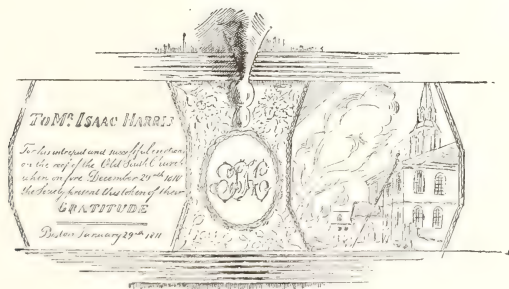 TO Mr. ISAAC HARRIS
For his intrepid and successful exertions
on the roof of the Old South Church
when on fire December 29th 1810
the Society present this token of their
GRATITUDE
Boston January 29th 1811
IH